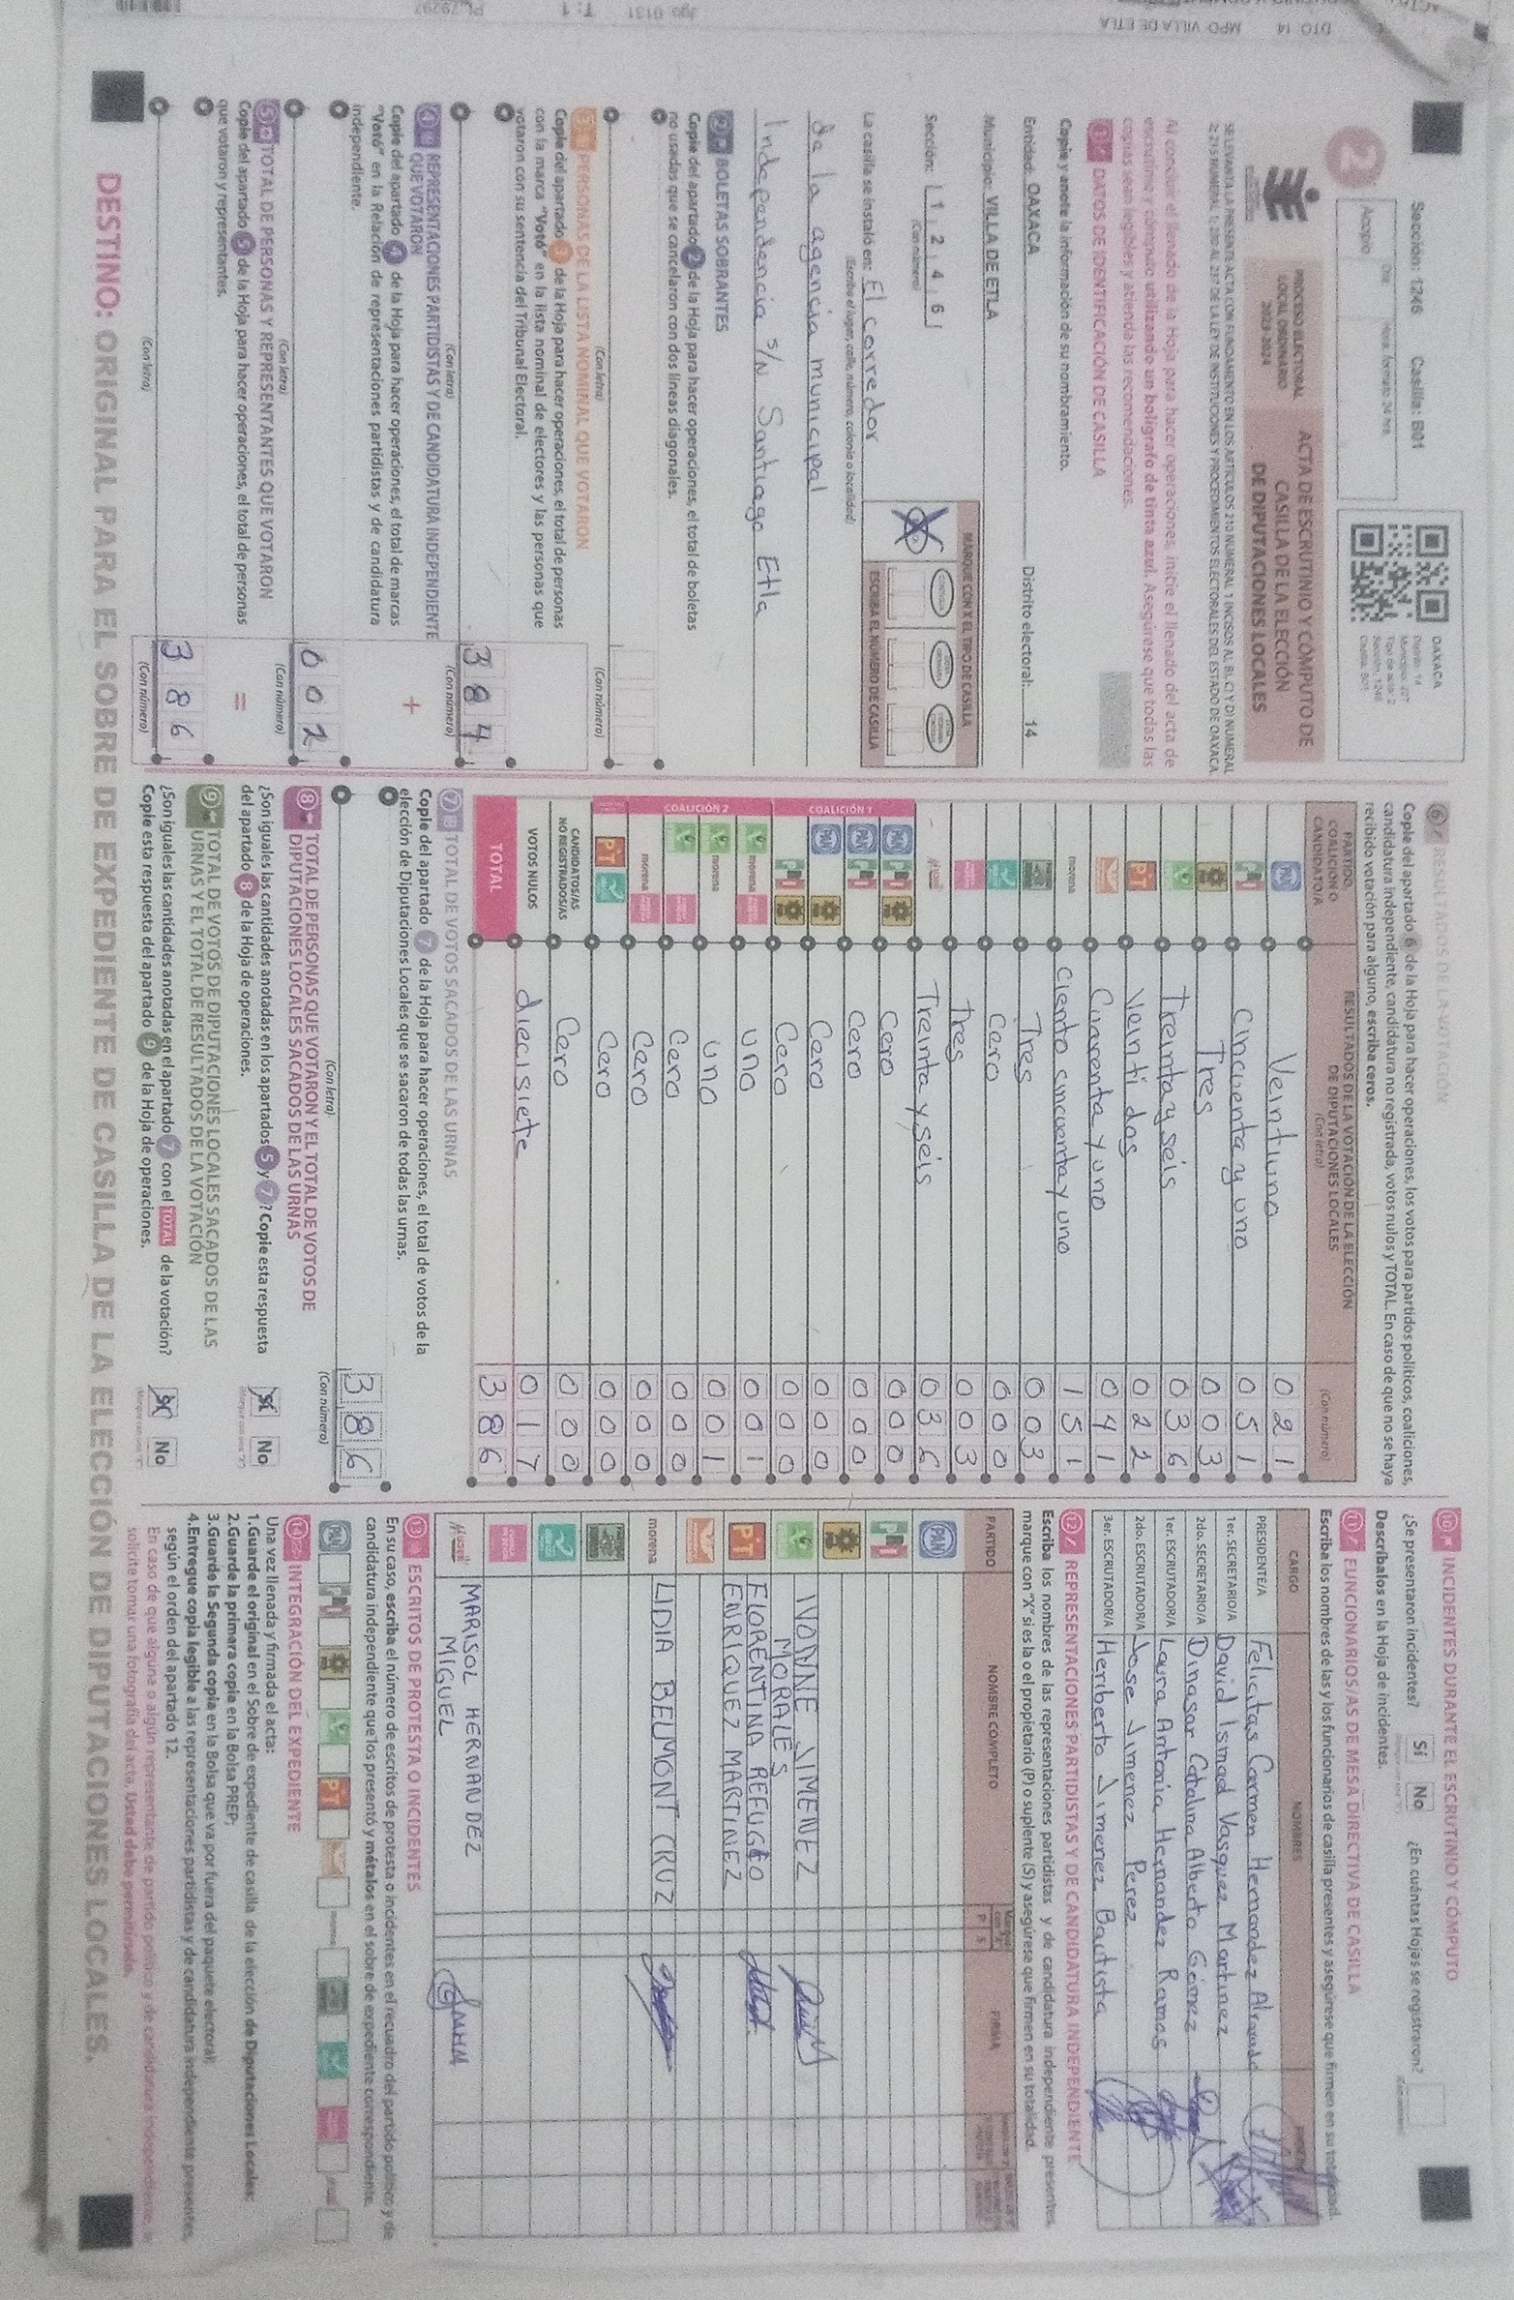 Sección: 1246 Casilla: B01
OAXACA
Distrito: 14
Sección: 1246
Casilla: B01
2
Acopio
Día
Hora: formato 24 hrs
PROCESO ELECTORAL
LOCAL ORDINARIO
2023-2024
ACTA DE ESCRUTINIO Y CÓMPUTO DE
CASILLA DE LA ELECCIÓN
DE DIPUTACIONES LOCALES
Al concluir el llenado de la Hoja para hacer operaciones, inicie el llenado del acta de
escrutinio y cómputo utilizando un bolígrafo de tinta azul. Asegúrese que todas las
copias sean legibles y atienda las recomendaciones.
1 DATOS DE IDENTIFICACIÓN DE CASILLA
Copie y anote la información de su nombramiento.
Entidad: OAXACA Distrito electoral: 14
Municipio: VILLA DE ETLA
Sección: 1 2 4 6
(Con número)
MARQUE CON X EL TIPO DE CASILLA
ESCRIBA EL NÚMERO DE CASILLA
La casilla se instaló en: El corredor
(Escriba el lugar, calle, número, colonia o localidad)
de la agencia municipal
Independencia S/N Santiago Etla
2 BOLETAS SOBRANTES
Copie del apartado 2 de la Hoja para hacer operaciones, el total de boletas
no usadas que se cancelaron con dos líneas diagonales.
(Con letra) (Con número)
3 PERSONAS DE LA LISTA NOMINAL QUE VOTARON
Copie del apartado 3 de la Hoja para hacer operaciones, el total de personas
con la marca "Votó" en la lista nominal de electores y las personas que
votaron con su sentencia del Tribunal Electoral.
384
(Con letra) (Con número)
4 REPRESENTACIONES PARTIDISTAS Y DE CANDIDATURA INDEPENDIENTE
QUE VOTARON
Copie del apartado 4 de la Hoja para hacer operaciones, el total de marcas
"Votó" en la Relación de representaciones partidistas y de candidatura
independiente.
+
002
(Con letra) (Con número)
5 TOTAL DE PERSONAS Y REPRESENTANTES QUE VOTARON
Copie del apartado 5 de la Hoja para hacer operaciones, el total de personas
que votaron y representantes.
=
386
(Con letra) (Con número)
6 RESULTADOS DE LA VOTACIÓN
Copie del apartado 6 de la Hoja para hacer operaciones, los votos para partidos políticos, coaliciones,
candidatura independiente, candidatura no registrada, votos nulos y TOTAL. En caso de que no se haya
recibido votación para alguno, escriba ceros.
PARTIDO, COALICIÓN O CANDIDATO/A
RESULTADOS DE LA VOTACIÓN DE LA ELECCIÓN
DE DIPUTACIONES LOCALES
(Con letra) (Con número)
PAN Veintiuno 021
PRI cincuenta y uno 051
PRD Tres 003
Treinta y seis 036
PT Veinti dos 022
Cuarenta y uno 041
morena Ciento cincuenta y uno 151
Tres 003
Cero 000
Tres 003
Treinta y seis 036
COALICIÓN 1
PAN PRI PRD Cero 000
PAN PRI Cero 000
PAN PRD Cero 000
PRI PRD Cero 000
COALICIÓN 2
morena uno 001
morena uno 001
Cero 000
morena Cero 000
PT Cero 000
CANDIDATOS/AS
NO REGISTRADOS/AS Cero 000
VOTOS NULOS diecisiete 017
TOTAL 386
7 TOTAL DE VOTOS SACADOS DE LAS URNAS
Copie del apartado 7 de la Hoja para hacer operaciones, el total de votos de la
elección de Diputaciones Locales que se sacaron de todas las urnas.
386
(Con letra) (Con número)
8 TOTAL DE PERSONAS QUE VOTARON Y EL TOTAL DE VOTOS DE
DIPUTACIONES LOCALES SACADOS DE LAS URNAS
¿Son iguales las cantidades anotadas en los apartados 5 y 7? Copie esta respuesta
del apartado 8 de la Hoja de operaciones.
Sí No
9 TOTAL DE VOTOS DE DIPUTACIONES LOCALES SACADOS DE LAS
URNAS Y EL TOTAL DE RESULTADOS DE LA VOTACIÓN
¿Son iguales las cantidades anotadas en el apartado 7 con el TOTAL de la votación?
Copie esta respuesta del apartado 9 de la Hoja de operaciones.
Sí No
10 INCIDENTES DURANTE EL ESCRUTINIO Y CÓMPUTO
¿Se presentaron incidentes? Sí No ¿En cuántas Hojas se registraron?
Descríbalos en la Hoja de incidentes.
11 FUNCIONARIOS/AS DE MESA DIRECTIVA DE CASILLA
Escriba los nombres de las y los funcionarios de casilla presentes y asegúrese que firmen en su totalidad.
CARGO NOMBRES
PRESIDENTE/A Felicitas Carmen Hernandez Alvarado
1er. SECRETARIO/A David Ismael Vasquez Martinez
2do. SECRETARIO/A Dinasar Catalina Alberto Gómez
1er. ESCRUTADOR/A Laura Antonia Hernandez Ramos
2do. ESCRUTADOR/A Jose Jimenez Perez
3er. ESCRUTADOR/A Heriberto Jimenez Bautista
12 REPRESENTACIONES PARTIDISTAS Y DE CANDIDATURA INDEPENDIENTE
Escriba los nombres de las representaciones partidistas y de candidatura independiente presentes,
marque con "X" si es la o el propietario (P) o suplente (S) y asegúrese que firmen en su totalidad.
PARTIDO NOMBRE COMPLETO P S FIRMA
PAN
PRI
PRD
IVONNE JIMENEZ
MORALES
PT FLORENTINA REFUGIO
ENRIQUEZ MARTINEZ
morena LIDIA BELMONT CRUZ
MARISOL HERNANDEZ
MIGUEL
MHM
13 ESCRITOS DE PROTESTA O INCIDENTES
En su caso, escriba el número de escritos de protesta o incidentes en el recuadro del partido político y de
candidatura independiente que los presentó y métalos en el sobre de expediente correspondiente.
PAN PRI PRD PT morena
14 INTEGRACIÓN DEL EXPEDIENTE
Una vez llenada y firmada el acta:
1.Guarde el original en el Sobre de expediente de casilla de la elección de Diputaciones Locales;
2.Guarde la primera copia en la Bolsa PREP;
3.Guarde la Segunda copia en la Bolsa que va por fuera del paquete electoral;
4.Entregue copia legible a las representaciones partidistas y de candidatura independiente presentes,
según el orden del apartado 12.
En caso de que alguna o algún representante de partido político y de candidatura independiente, le
solicite tomar una fotografía del acta, Usted debe permitirlo.
DESTINO: ORIGINAL PARA EL SOBRE DE EXPEDIENTE DE CASILLA DE LA ELECCIÓN DE DIPUTACIONES LOCALES.
DTO 14 MPO VILLA DE ETLA